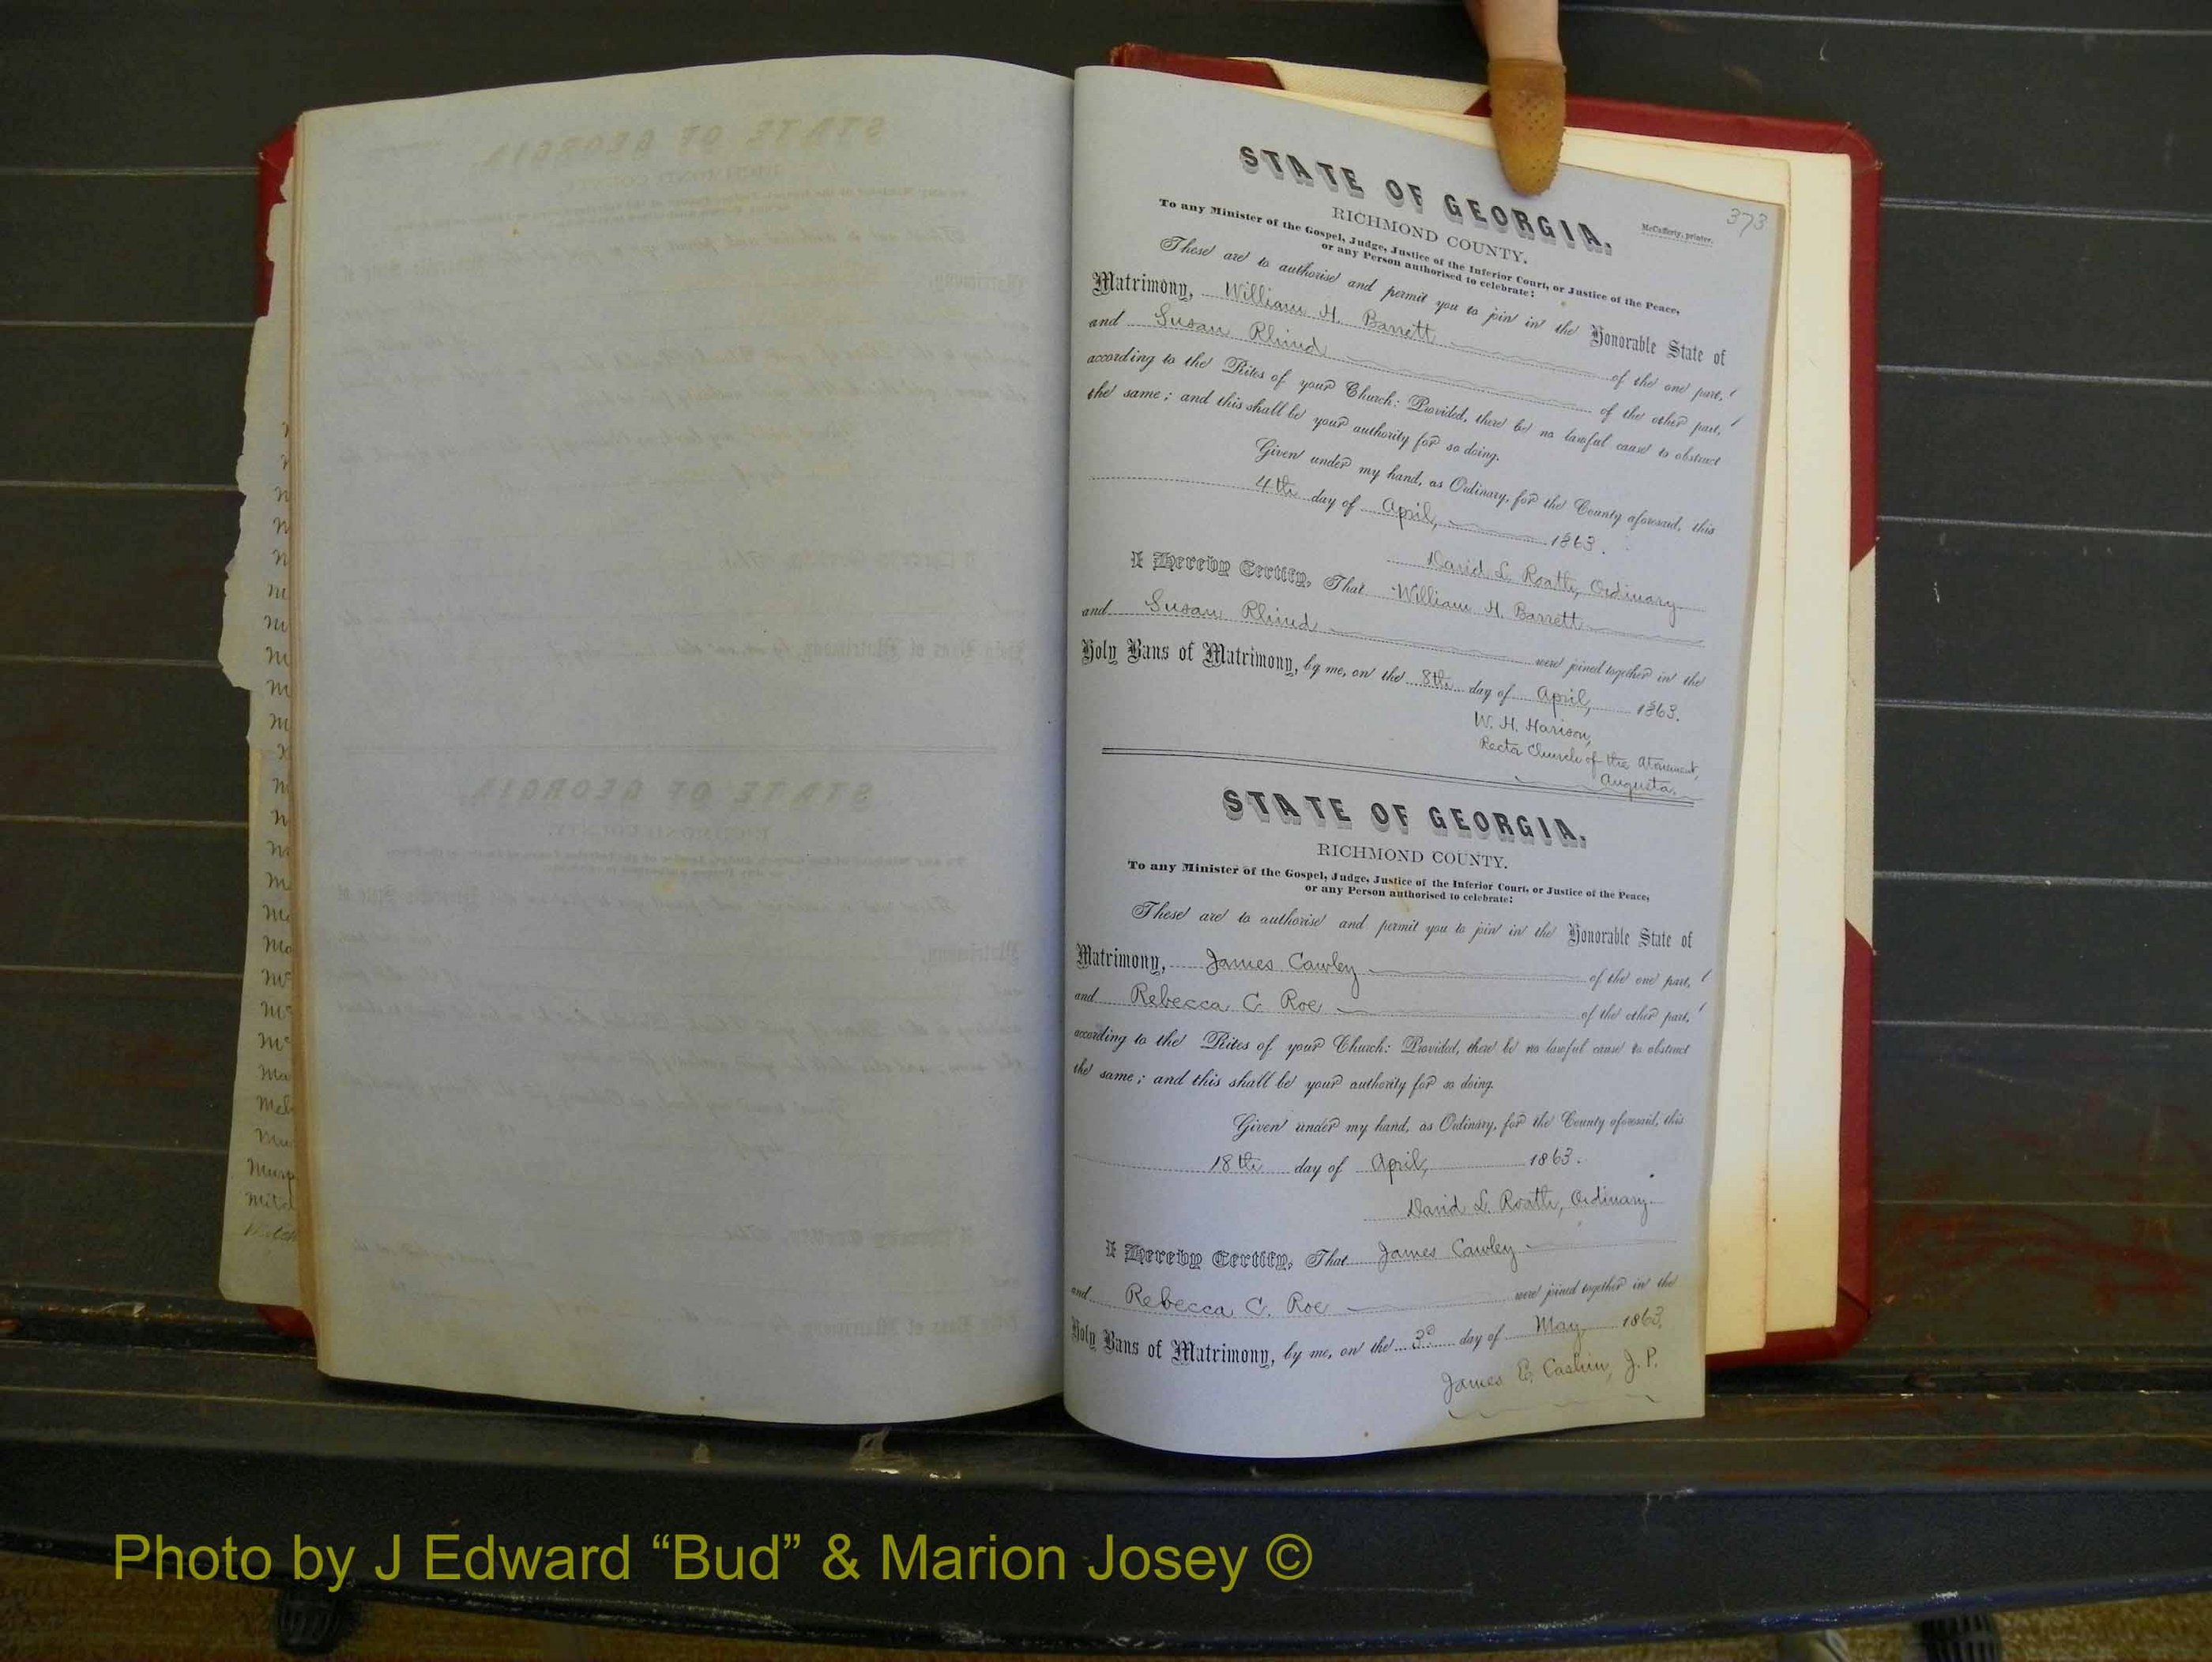 373
STATE OF GEORGIA,
McCafferty, printer.
RICHMOND COUNTY.
To any Minister of the Gospel, Judge, Justice of the Inferior Court, or Justice of the Peace,
or any Person authorised to celebrate:
These are to authorise and permit you to join in the Honorable State of
Matrimony, William H. Barrett of the one part,
and Susan Rhind of the other part,
according to the Rites of your Church: Provided, there be no lawful cause to obstruct
the same; and this shall be your authority for so doing.
Given under my hand, as Ordinary, for the County aforesaid, this
4th day of April, 1863.
David L. Roath, Ordinary
I Hereby Certify, That William H. Barrett
and Susan Rhind were joined together in the
Holy Bans of Matrimony, by me, on the 8th day of April, 1863.
W. H. Harison,
Rector Church of the Atonement,
Augusta.
STATE OF GEORGIA,
RICHMOND COUNTY.
To any Minister of the Gospel, Judge, Justice of the Inferior Court, or Justice of the Peace,
or any Person authorised to celebrate:
These are to authorise and permit you to join in the Honorable State of
Matrimony, James Cawley of the one part,
and Rebecca C. Roe of the other part,
according to the Rites of your Church: Provided, there be no lawful cause to obstruct
the same; and this shall be your authority for so doing.
Given under my hand, as Ordinary, for the County aforesaid, this
18th day of April, 1863.
David L. Roath, Ordinary.
I Hereby Certify, That James Cawley
and Rebecca C. Roe were joined together in the
Holy Bans of Matrimony, by me, on the 3d day of May 1863.
James E. Cashin, J. P.
Photo by J Edward “Bud” & Marion Josey ©